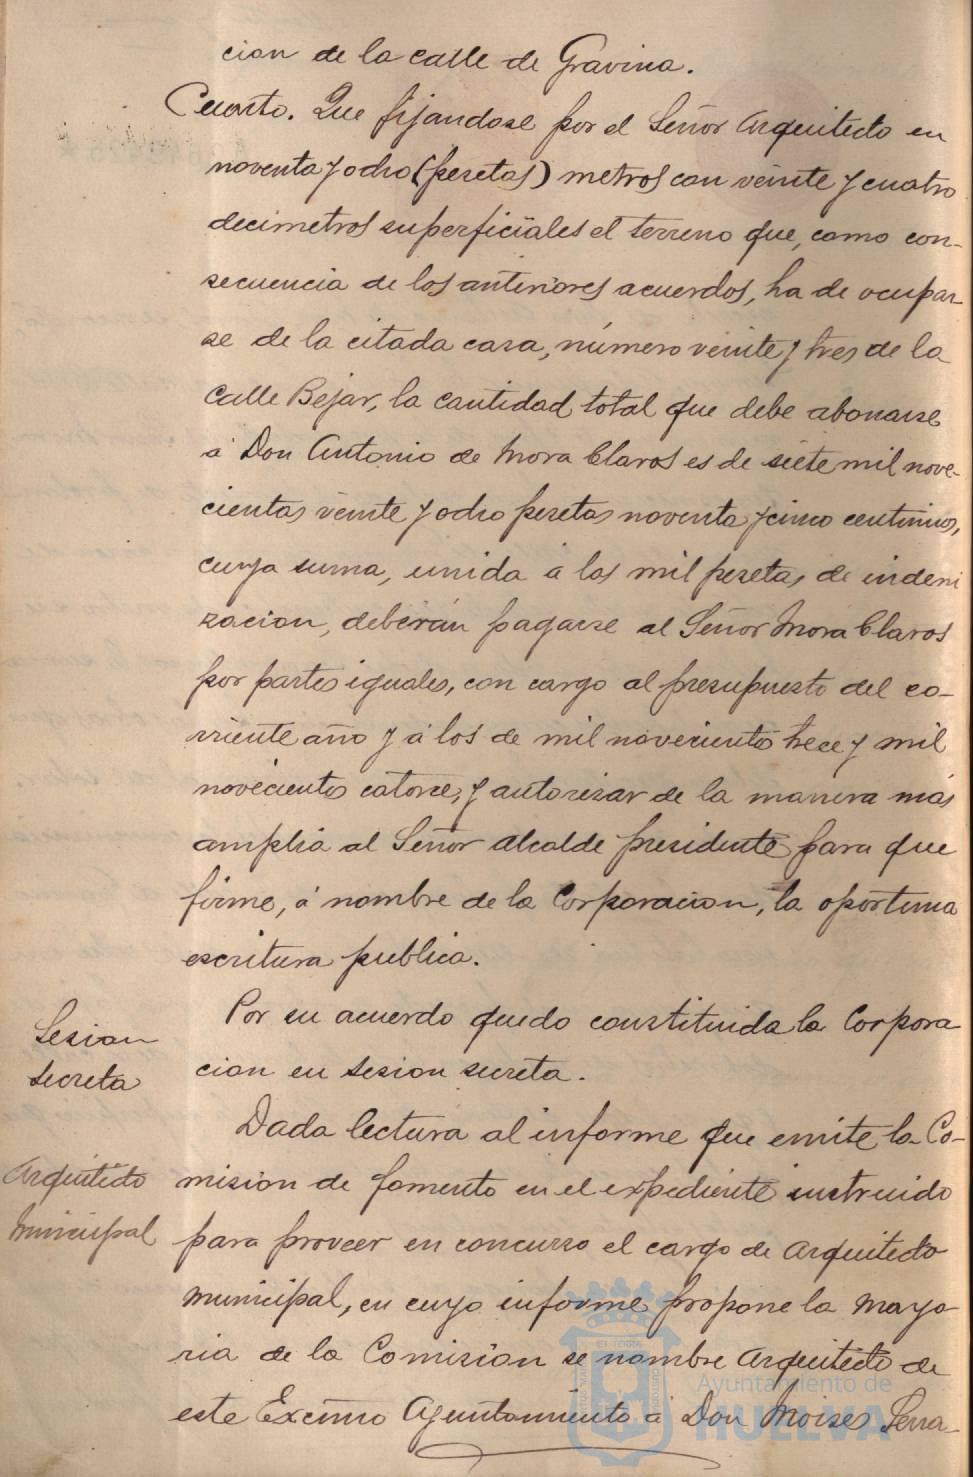 cion de la calle de Gravina.
Cuarto. Que fijandose por el Señor Arquitecto en
noventa y ocho (pesetas) metros con veinte y cuatro
decimetros superficiales el terreno que, como con-
secuencia de los anteriores acuerdos, ha de ocupar
se de la citada casa, número veinte y tres de la
calle Bejar, la cantidad total que debe abonarse
á Don Antonio de Mora Claros es de siete mil nove-
cientas veinte y ocho pesetas noventa y cinco centimos,
cuya suma, unida á las mil pesetas de indeni
zacion, deberán pagarse al Señor Mora Claros
por partes iguales, con cargo al presupuesto del co-
rriente año y á los de mil novecientos trece y mil
novecientos catorce, y autorizar de la manera más
amplia al Señor Alcalde presidente para que
firme, á nombre de la Corporacion, la oportuna
escritura publica.
Sesion
secreta
Por su acuerdo quedo constituida la Corpora
cion en sesion secreta.
Arquitecto
Municipal
Dada lectura al informe que emite la Co-
mision de fomento en el expediente instruido
para proveer en concurso el cargo de Arquitecto
municipal, en cuyo informe propone la mayo-
ria de la Comision se nombre Arquitecto de
este Excmo Ayuntamiento á Don Moises Serra-
Ayuntamiento de
HUELVA